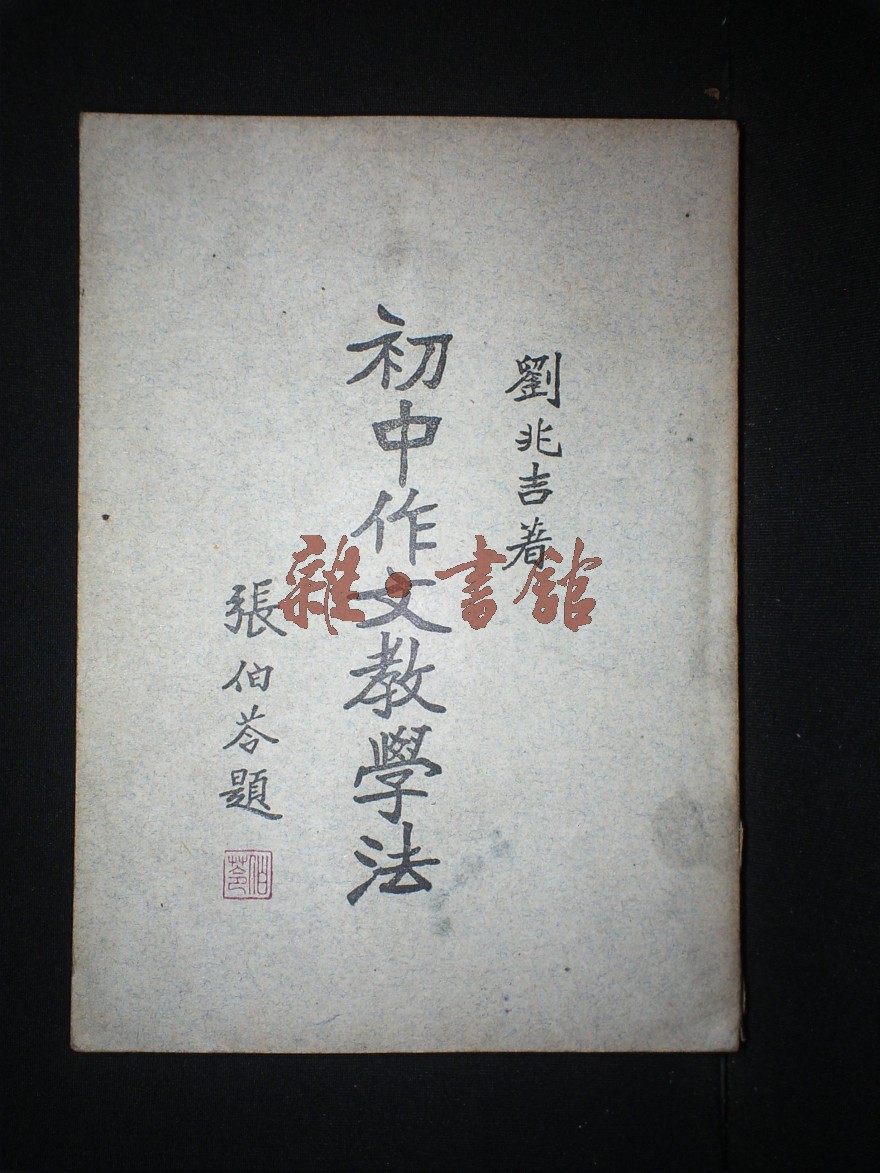 劉兆吉著
初中作文教學法
張伯苓題
伯苓
雜·書館